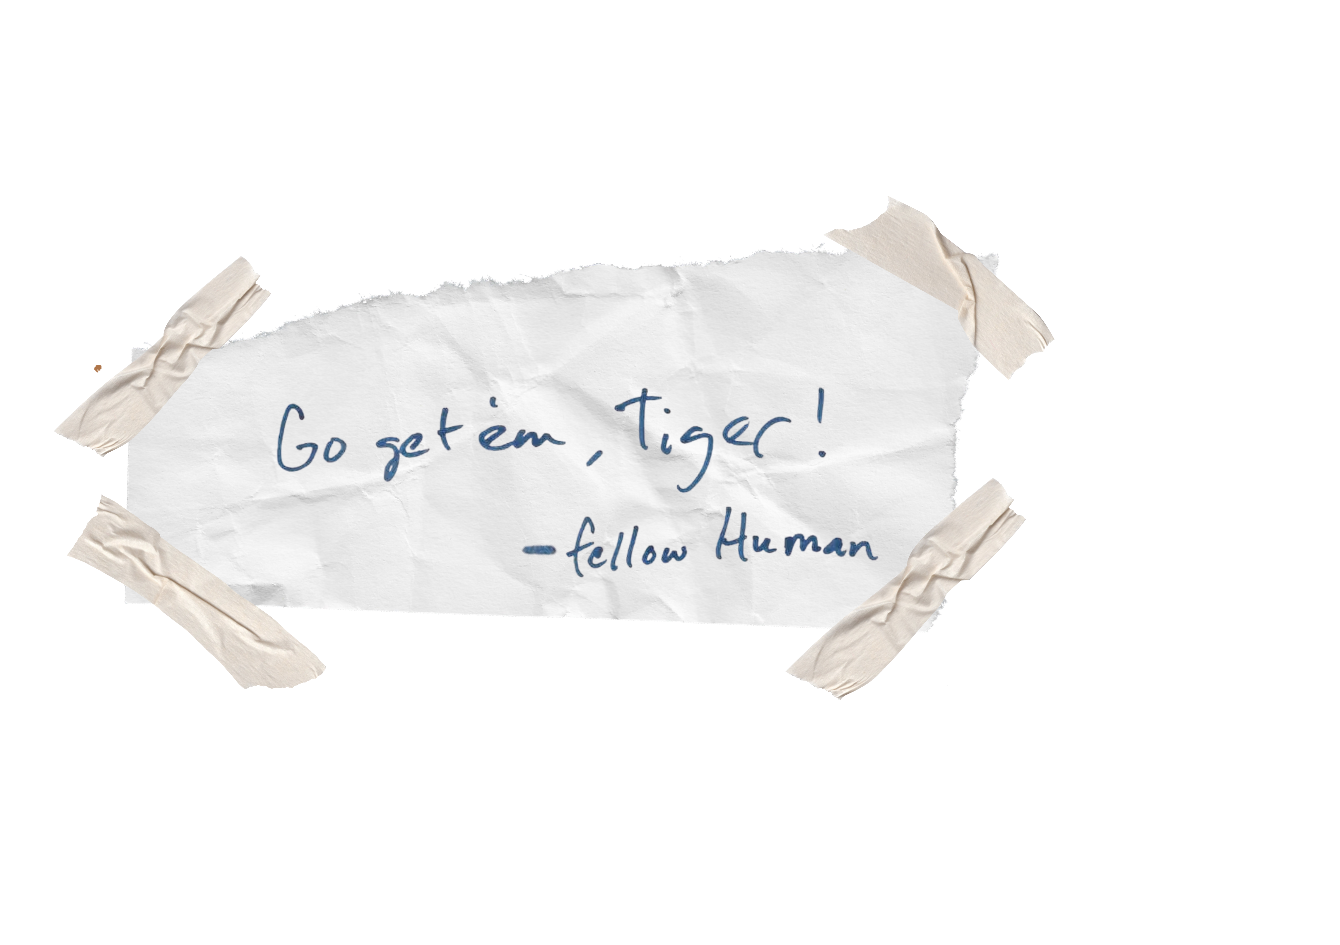 Go get 'em, Tiger!
-fellow Human